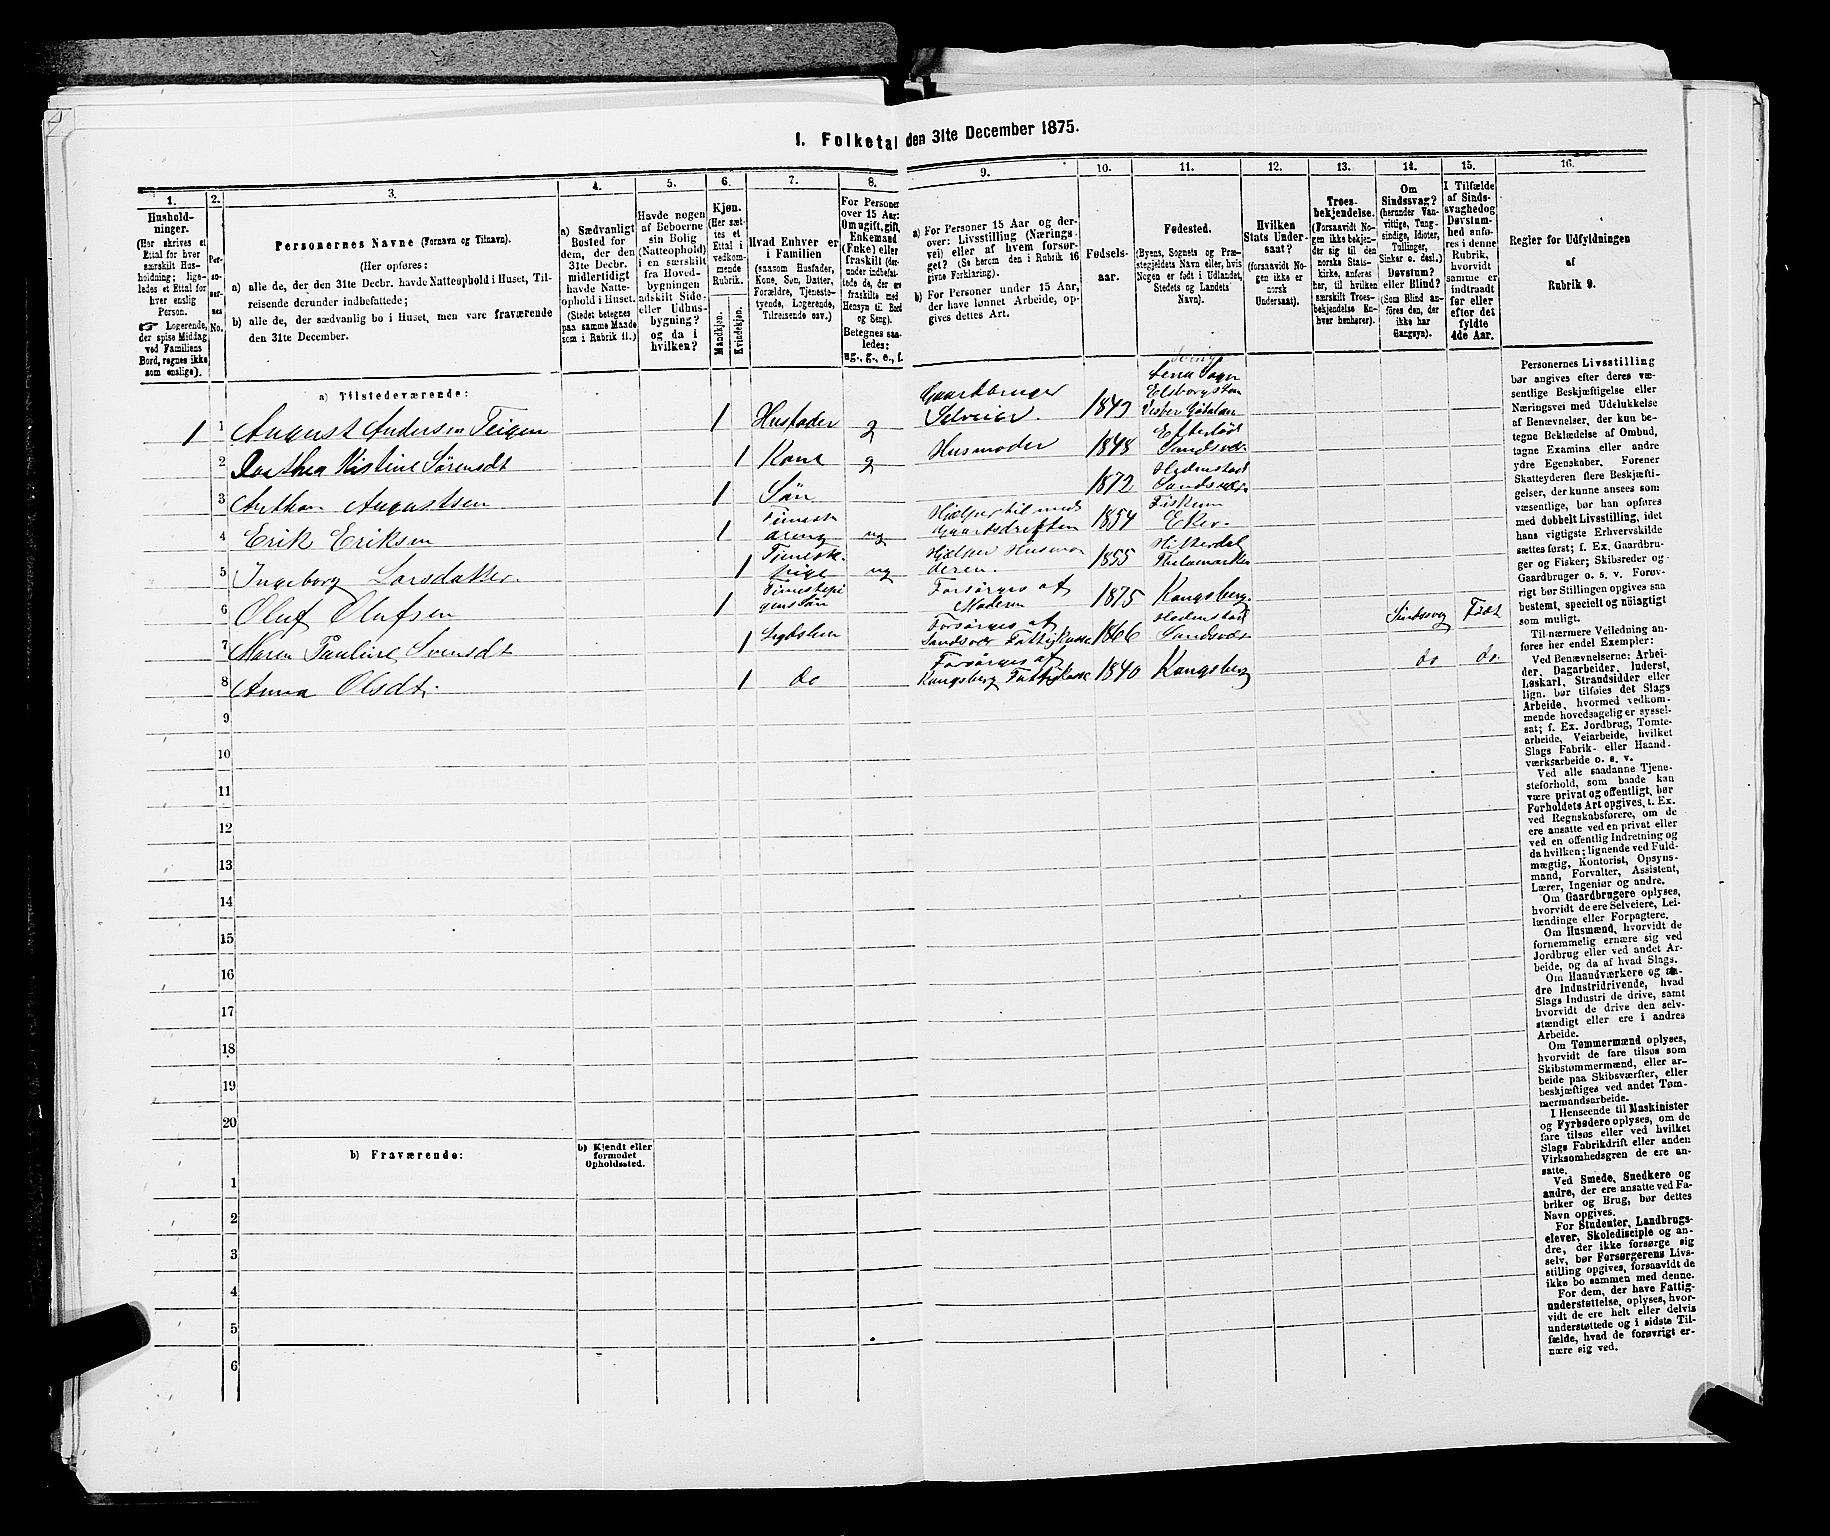 1. Folketal den 31te December 1875.
1. 2. 3. 4. 5. 6. 7. 8. 9. 10. 11. 12. 13. 14. 15. 16.
Hushold-
ninger.
(Her skrives et
Ettal for hver
særskilt Hus-
holdning; lige-
ledes et Ettal for
hver enslig
Person.
☞ Logerende,
der spise Middag
ved Familiens
Bord, regnes ikke
som enslige).
Per-
so-
ner-
nes
No.
Personernes Navne (Fornavn og Tilnavn).
(Her opføres:
a) alle de, der den 31te Decbr. havde Natteophold i Huset, Til-
reisende derunder indbefattede;
b) alle de, der sædvanlig bo i Huset, men vare fraværende
den 31te December.
a) Sædvanligt
Bosted for
dem, der den
31te Decbr.
midlertidigt
havde Natte-
ophold i Huset.
(Stedet betegnes
paa samme Maade
som i Rubrik 11.)
Havde nogen
af Beboerne
sin Bolig
(Natteophold)
i en særskilt
fra Hoved-
bygningen
adskilt Side-
eller Udhus-
bygning?
og da i
hvilken?
Kjøn.
(Her sæt-
tes et
Ettal i
vedkom-
mende
Rubrik.)
Mandkjøn.
Kvindekjøn.
Hvad Enhver er
i Familien
(saasom Husfader,
Kone, Søn, Datter,
Forældre, Tjeneste-
tyende, Logerende,
Tilreisende osv.)
For Personer
over 15 Aar:
Om ugift, gift,
Enkemand
(Enke) eller
fraskilt (der-
under indbefat-
tede de, der ere
fraskilte med
Hensyn til Bord
og Seng).
Betegnes saa-
ledes:
ug., g., e., f.
a) For Personer 15 Aar og der-
over: Livsstilling (Nærings-
vei) eller af hvem forsør-
get? (Se herom den i Rubrik 16
givne Forklaring).
b) For Personer under 15 Aar,
der have lønnet Arbeide, op-
gives dettes Art.
Fødsels-
aar.
Fødested.
(Byens, Sognets og Præ-
stegjeldets Navn eller, hvis
Nogen er født i Udlandet,
Stedets og Landets
Navn).
Hvilken
Stats Under-
saat?
(forsaavidt No-
gen ikke er
norsk
Undersaat).
Troes-
bekjendelse.
(Forsaavidt No-
gen ikke bekjen-
der sig til den
norske Stats-
kirke, anføres
her, til hvilken
særskilt Troes-
bekjendelse En-
hver henhører).
Om
Sindssvag?
(herunder Van-
vittige, Tung-
sindige, Idioter,
Tullinger,
Sinker o. desl.)
Døvstum?
eller Blind?
(Som Blind an-
føres den, der
ikke har
Gangsyn).
I Tilfælde
af Sinds-
svaghed og
Døvstum-
hed anfø-
res i denne
Rubrik,
hvorvidt
samme er
indtraadt
før eller
efter det
fyldte
4de Aar.
Regler for Udfyldningen
af
Rubrik 9.
a) Tilstedeværende:
1 1 August Andersen Teigen 1 Husfader g Gaardbruger Selveier. 1842
2 Dorthea Kistine Sørensdt 1 Kone g Husmoder 1848 Efterlødt Sandsvær
3 Anthon Augustsen 1 Søn 1872 Hedenstad Sandsvær
4 Erik Eriksen 1 ug Hjælper til med Gaardsdriften 1854 Fiskum Eker.
5 Ingeborg Larsdatter 1 ug Hjælper Husmo deren. 1855 Hitterdal Thelemarken
6 Oluf Olufsen 1 Forsørges af Moderen 1875 Kongsberg.
7 Maren Pauline Svensdt 1 Lægdslem Forsørges af Sandsvær Fattigkasse 1866 Hedenstad Sandsvær Sindssvag Født
8 Anna Olsdt. 1 do Forsørges af Kongsberg Fattigkasse 1840 Kongsberg do do
9
10
11
12
13
14
15
16
17
18
19
20
b) Fraværende:
b) Kjendt eller
formodet
Opholdssted.
1
2
3
4
5
6
Personernes Livsstilling
bør angives efter deres væ-
sentlige Beskjæftigelse eller
Næringsvei med Udelukkelse
af Benævnelser, der kun be-
tegne Beklædelse af Ombud,
tagne Examina eller andre
ydre Egenskaber. Forener
Skatteyderen flere Beskjæfti-
gelser, der kunne ansees som
væsentlige, bør han opføres
med dobbelt Livsstilling, idet
hans vigtigste Erhvervskilde
sættes først; f. Ex. Gaardbru-
ger og Fisker; Skibsreder og
Gaardbruger o. s. v. Forøv-
rigt bør Stillingen opgives saa
bestemt, specielt og nøiagtigt
som muligt.
Til nærmere Veiledning an-
føres her endel Exempler:
Ved Benævnelserne: Arbei-
der, Dagarbeider, Inderst,
Løskarl, Strandsidder eller
lign. bør tilføies det Slags
Arbeide, hvormed vedkom-
mende hovedsagelig er syssel-
sat; f. Ex. Jordbrug, Tomte-
arbeide, Veiarbeide, hvilket
Slags Fabrik- eller Haand-
værksarbeide o. s. v.
Ved alle saadanne Tjene-
steforhold, som baade kan
være privat og offentligt, bør
Forholdets Art opgives, t. Ex.
ved Regnskabsførere, om de
ere ansatte ved en privat eller
ved en offentlig Indretning og
da hvilken; lignende ved Fuld-
mægtig, Kontorist, Opsyns-
mand, Forvalter, Assistent,
Lærer, Ingeniør og andre.
Om Gaardbrugere oplyses,
hvorvidt de ere Selveiere, Lei-
lændinge eller Forpagtere.
Om Husmænd, hvorvidt de
fornemmelig ernære sig ved
Jordbrug eller ved andet Ar-
beide, og da af hvad Slags.
Om Haandværkere og an-
dre Industridrivende, hvad
Slags Industri de drive, samt
hvorvidt de drive den selv-
stændigt eller ere i andres
Arbeide.
Om Tømmermænd oplyses,
hvorvidt de fare tilsøs som
Skibstømmermænd, eller ar-
beide paa Skibsværfter, eller
beskjæftiges ved andet Tøm-
mermandsarbeide.
I Henseende til Maskinister
og Fyrbødere oplyses, om de
fare tilsøs eller ved hvilket
Slags Fabrikdrift eller anden
Virksomhedsgren de ere an-
satte.
Ved Smede, Snedkere og
andre, der ere ansatte ved Fa-
briker og Brug, bør dettes
Navn opgives.
For Studenter, Landbrugs-
elever, Skoledisciple og an-
dre, der ikke forsørge sig
selv, bør Forsørgerens Livs-
stilling opgives, forsaavidt de
ikke bo sammen med denne.
For dem, der have Fattig-
understøttelse, oplyses, hvor-
vidt de ere helt eller delvis
understøttede og i sidste Til-
fælde, hvad de forøvrigt er-
nære sig ved.